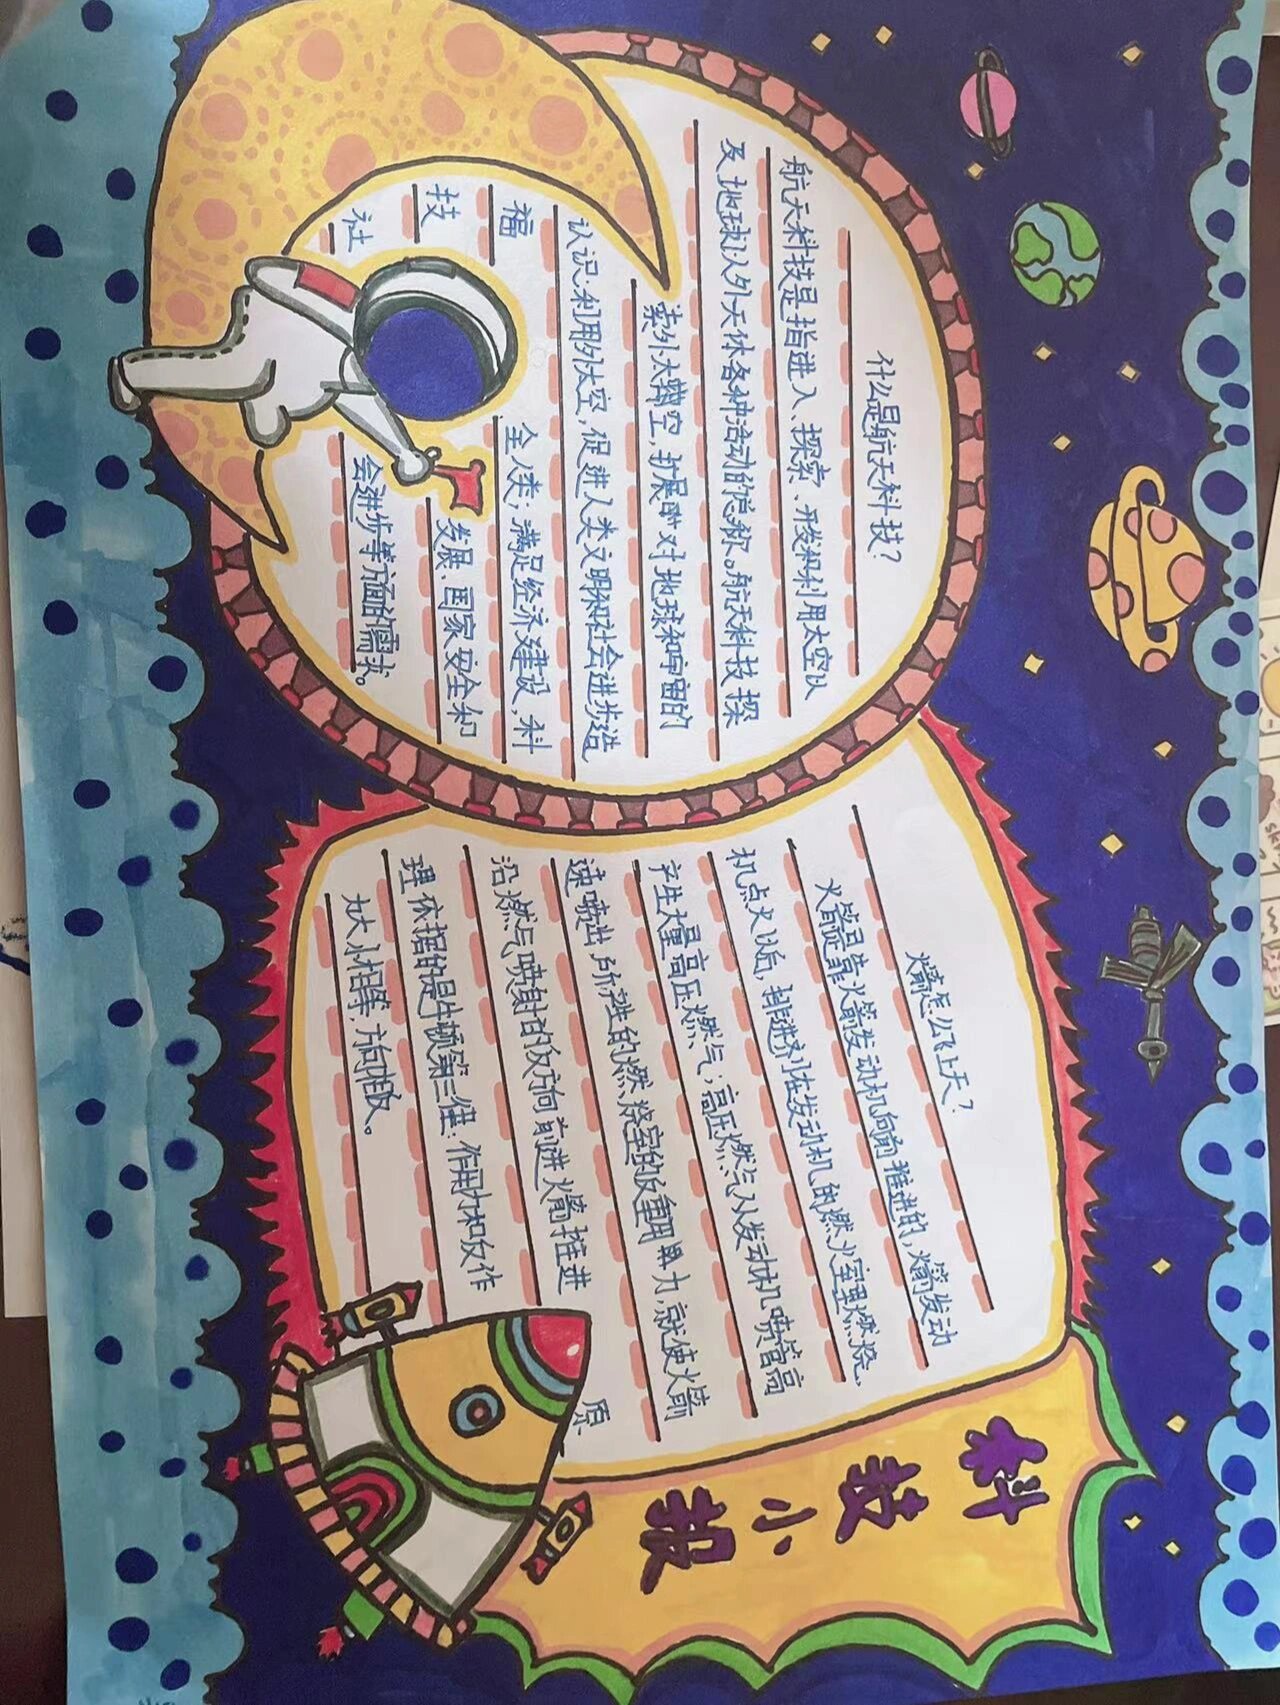 什么是航天科技？
航天科技是指进入、探索、开发和利用太空以
及地球以外天体各种活动的总称。航天科技探
索外太空，扩展对地球和宇宙的
认识；利用外太空，促进人类文明和社会进步造
福全人类；满足经济建设，科
技发展、国家安全和
社会进步等方面的需求。
火箭怎么飞上天？
火箭是靠火箭发动机向前推进的，火箭发动
机点火以后，推进剂在发动机的燃火室里燃烧，
产生大量高压燃气；高压燃气从发动机喷管高
速喷出，所产生的燃烧室的反作用力，就使火箭
沿燃气喷射的反方向前进火箭推进原
理依据的是牛顿第三定律：作用力和反作
力大小相等方向相反。
科技小报